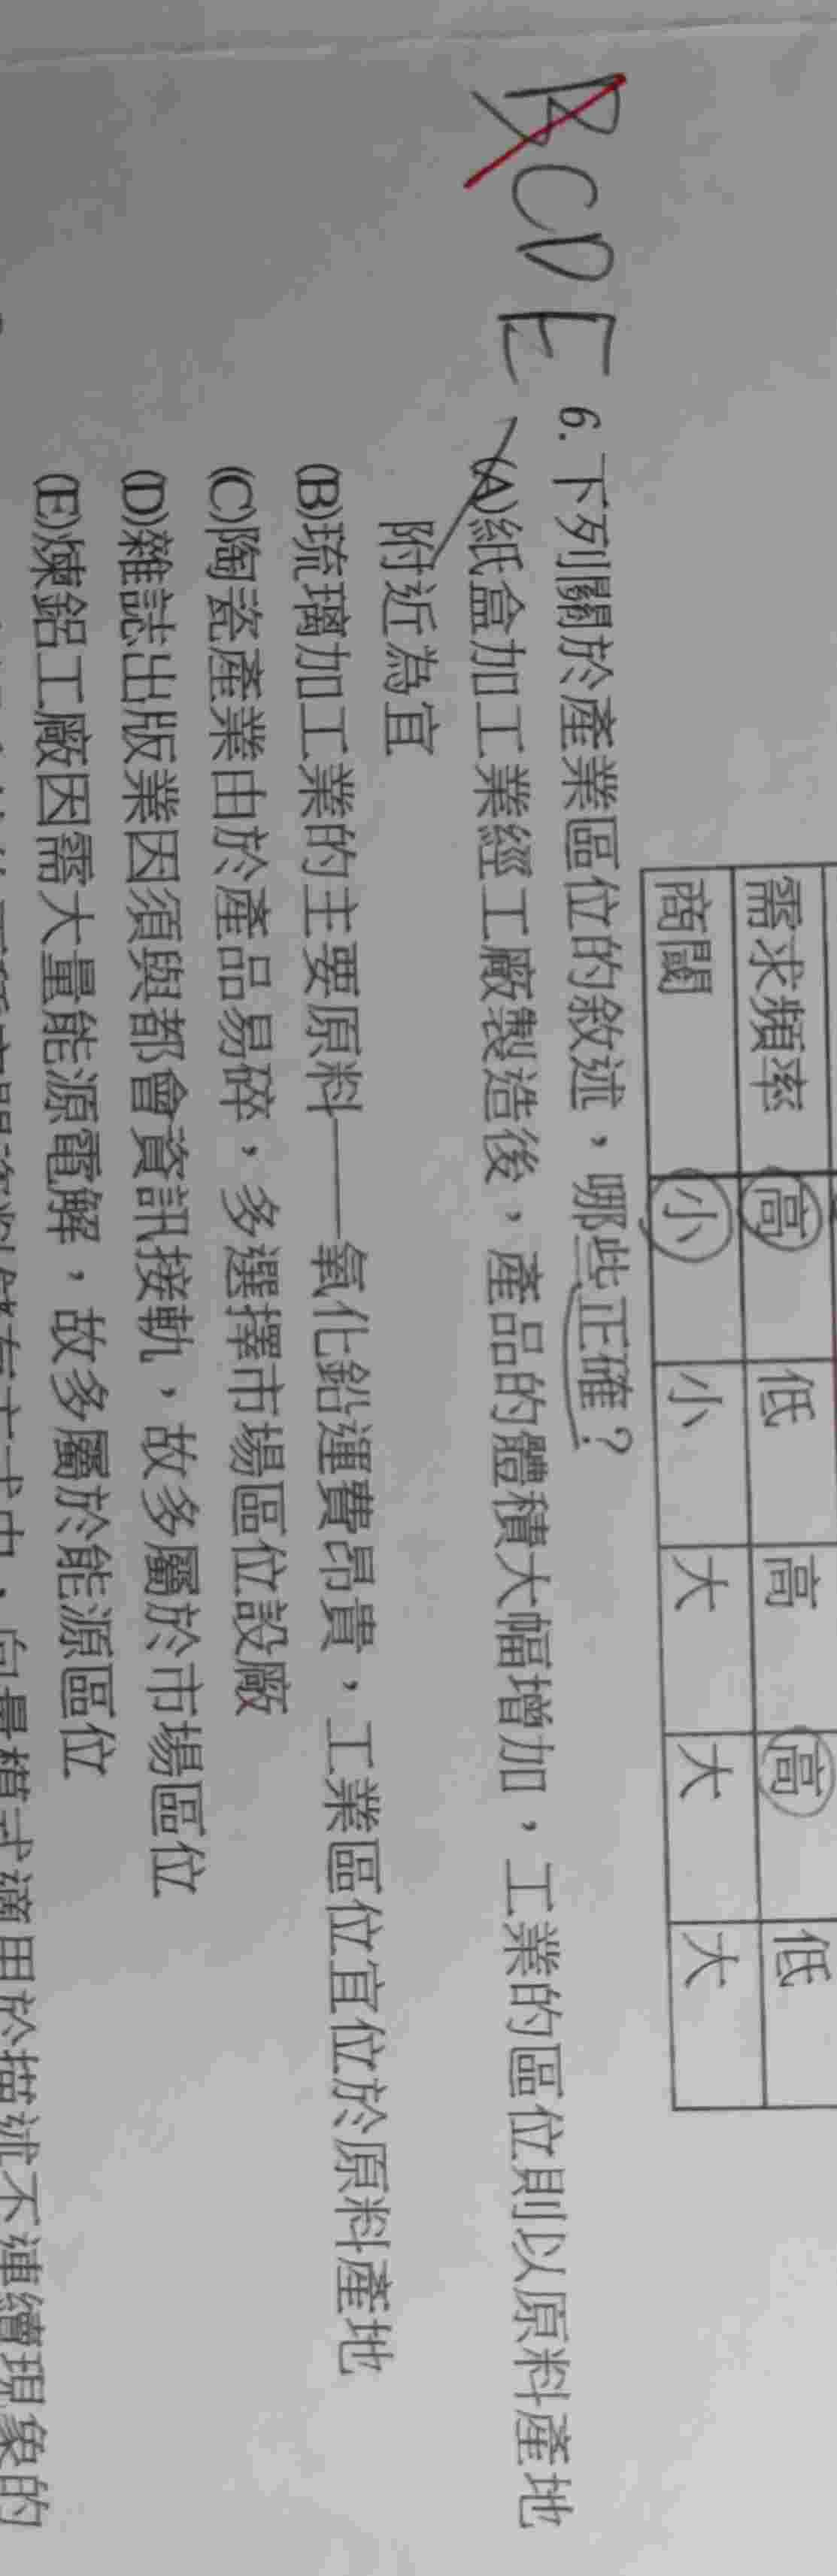 需求頻率 高 低 高 高 低
商閾 小 小 大 大 大
BCDE 6.下列關於產業區位的敘述，哪些正確？
(A)紙盒加工業經工廠製造後，產品的體積大幅增加，工業的區位則以原料產地
附近為宜
(B)琉璃加工業的主要原料——氧化鉛運費昂貴，工業區位宜位於原料產地
(C)陶瓷產業由於產品易碎，多選擇市場區位設廠
(D)雜誌出版業因須與都會資訊接軌，故多屬於市場區位
(E)煉鋁工廠因需大量能源電解，故多屬於能源區位
方式中，向量模式適用於描述不連續現象的